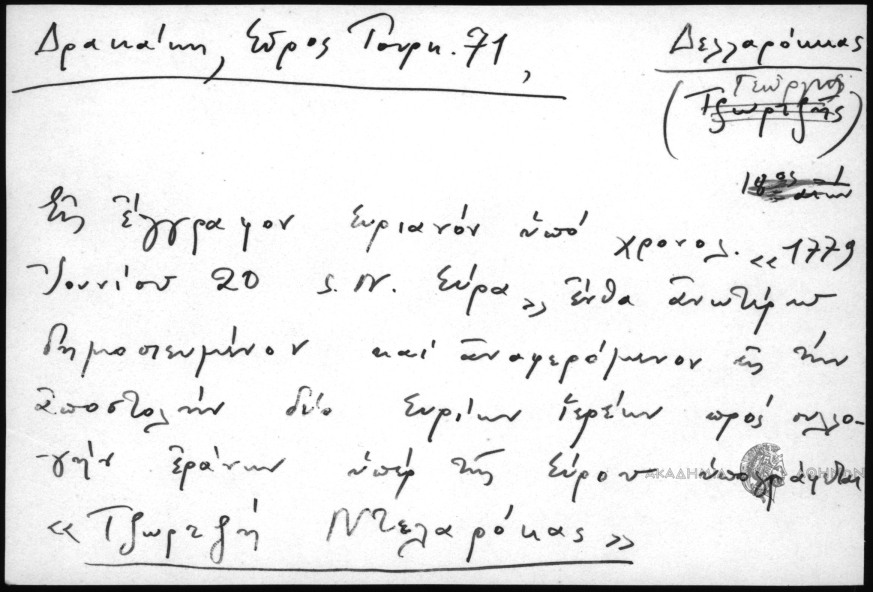 Δρακάκη, Σῦρος Τουρκ. 71,
Δελλαρόκκας
(Γεώργιος
Τζωρτζῆς)
18ος αἰών
Εἰς ἔγγραφον Συριανόν ὑπό χρονολ. «1779
Ἰουνίου 20 S.N. Σύρα» ἔνθα ἀνωτέρω
δημοσιευμένον καί ἀναφερόμενον εἰς τήν
ἀποστολήν δύο Συρίων ἱερέων πρός συλλο-
γήν ἐράνων ὑπέρ τῆς Σύρου ὑπογράφεται
«Τζωρτζή Ντελαρόκας»
ΑΚΑΔΗΜΙΑ ΑΘΗΝΩΝ